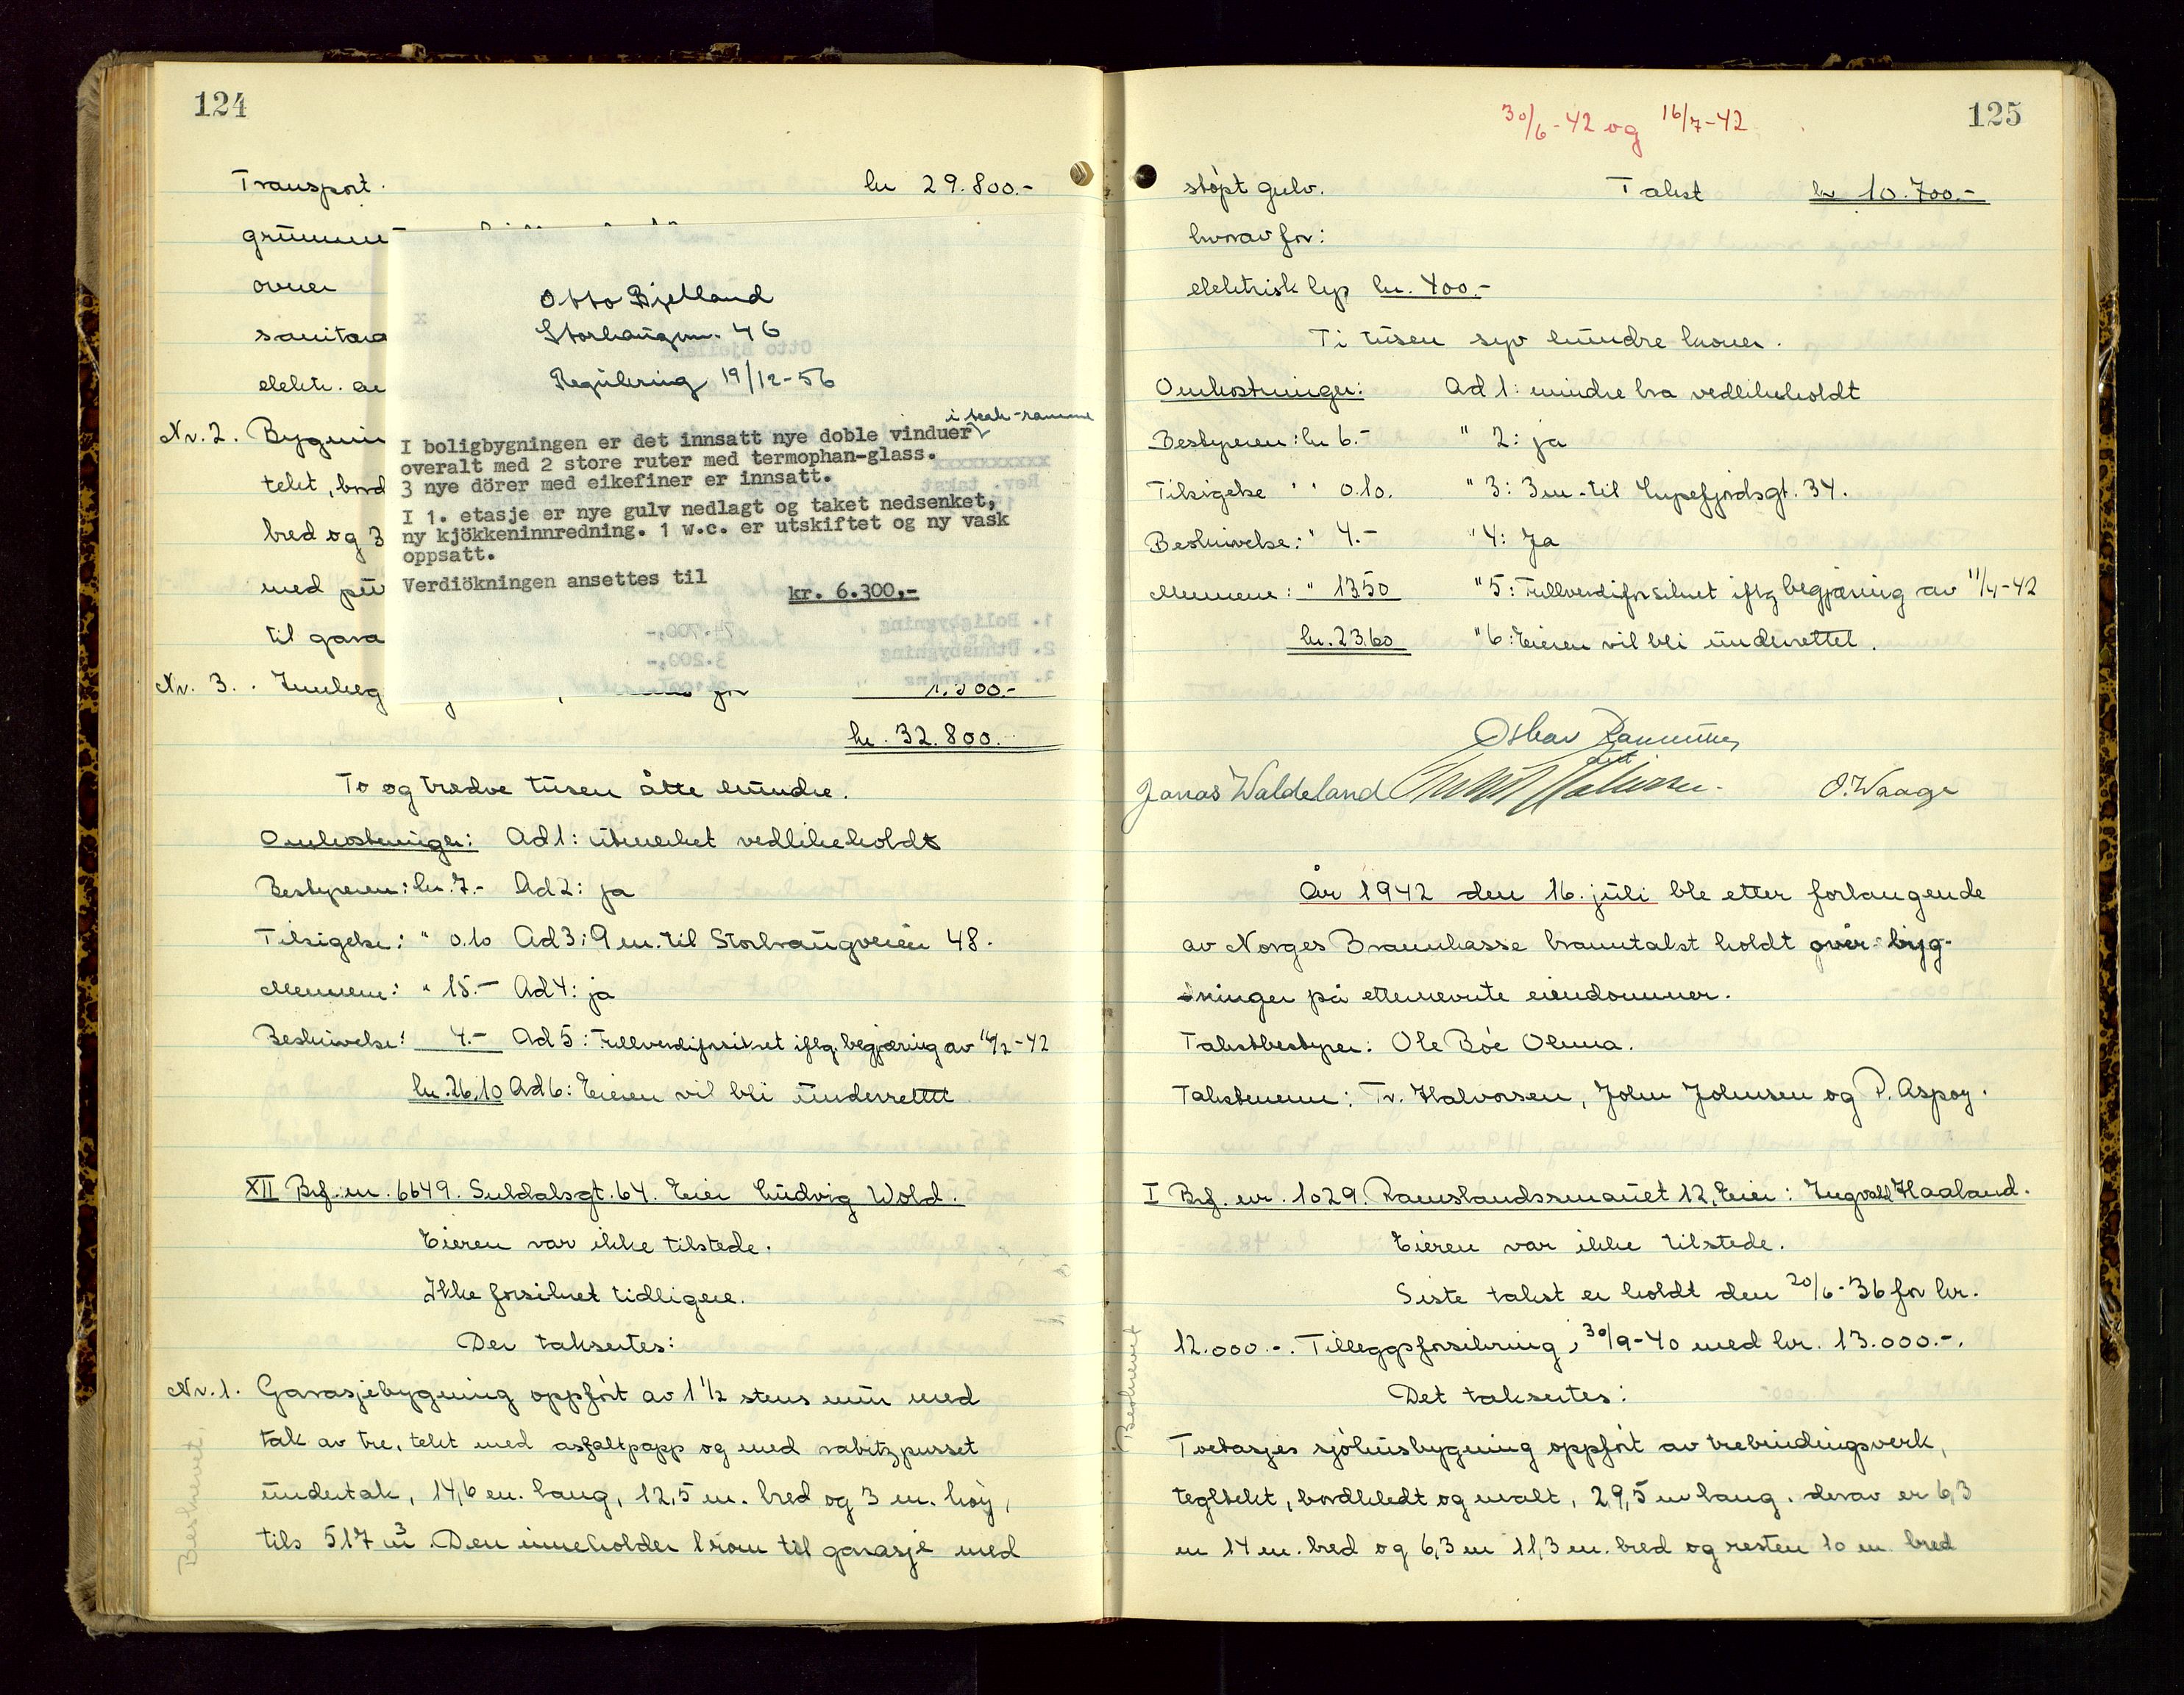 124
Transport. kr 29.800.-
grunnmur
ovner
sanitær
elektr. an
Nr. 2. Bygnin
tekt, bord
bred og 3
med pus
til gara
Nr. 3. Innheg
kr. 32.800.-
To og tredve tusen åtte hundre.
Omkostninger: Ad 1: utmerket vedlikeholdt
Bestyreren: kr. 7.- Ad 2: ja
Tilsigelse: " 0.10 Ad 3: 9 m. til Storhaugveien 48.
Mennene: " 15.- Ad 4: ja
Beskrivelse: 4.- Ad 5: Fullverdiforsikret iflg. begjæring av 14/2-42
kr. 26,10 Ad 6: Eieren vil bli underrettet
XII Brf. nr. 6649. Suldalsgt. 64. Eier Ludvig Wold.
Eieren var ikke tilstede.
Ikke forsikret tidligere.
Der taksertes:
Nr. 1. Garasjebygning oppført av 1 1/2 stens mur med
tak av tre, tekt med asfaltpapp og med rabitzpusset
undertak, 14,6 m. lang, 12,5 m. bred og 3 m. høy,
tils 517 m³. Den inneholder 1 rom til garasje med
Beskrevet.
Otto Bjelland
Storhaugvn. 46
Regulering 19/12-56
i teak-ramme
I boligbygningen er det innsatt nye doble vinduer
overalt med 2 store ruter med termophan-glass.
3 nye dörer med eikefiner er innsatt.
I 1. etasje er nye gulv nedlagt og taket nedsenket,
ny kjökkeninnredning. 1 w.c. er utskiftet og ny vask
oppsatt.
Verdiökningen ansettes til
kr. 6.300,-
30/6-42 og 16/7-42
125
støpt gulv. Takst kr 10.700.-
hvorav for:
elektrisk lys kr. 400.-
Ti tusen syv hundre kroner.
Omkostninger: Ad 1: mindre bra vedlikeholdt
Bestyreren: kr 6.- " 2: ja
Tilsigelse " 0.10. " 3: 3 m. til Enpefjordsgt. 34.
Beskrivelse: " 4.- " 4: Ja
Mennene: " 13.50 " 5: Fullverdiforsikret iflg begjæring av 11/4-42
kr. 23.60 " 6: Eieren vil bli underrettet.
Jonas Waldeland O. Waage
År 1942 den 16. juli ble etter forlangende
av Norges Brannkasse branntakst holdt over byg-
ninger på etternevnte eiendommer.
Takstbestyrer: Ole Bøe Olena.
Takstmenn: Tr. Halvorsen, John Johnsen og P. Aspøy.
I Brf. nr. 1029. Ramslandssmauet 12, Eier: Ingvald Haaland.
Eieren var ikke tilstede.
Siste takst er holdt den 20/6-36 for kr.
12.000.-. Tilleggsforsikring i 30/9-40 med kr. 13.000.-.
Det taksertes:
Toetasjes sjøhusbygning oppført av trebindingsverk,
tegltekt, bordkledt og malt, 29,5 m lang. derav er 6,3
m 14 m. bred og 6,3 m 11,3 m. bred og resten 10 m. bred
Beskrevet